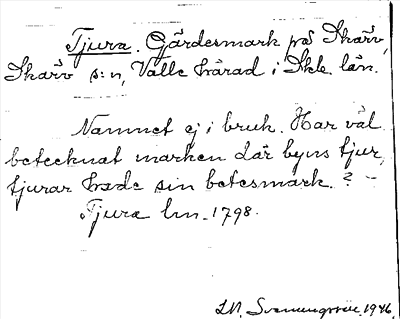 Tjura. Gärdesmark på Skärv,
Skärv s:n, Valle härad i Skb. län.
Namnet ej i bruk. Har väl
betecknat marken där byns tjur,
tjurar hade sin betesmark. ?
Tjura lm. 1798.
1946.